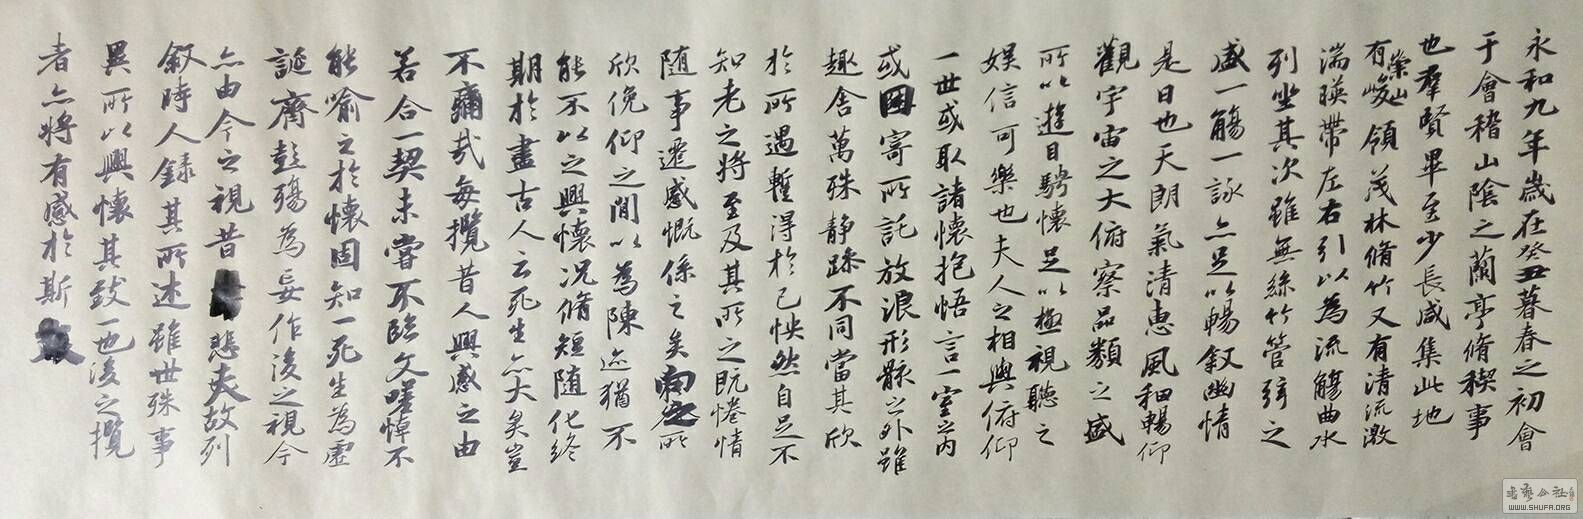 永和九年歲在癸丑暮春之初會
于會稽山陰之蘭亭脩稧事
也羣賢畢至少長咸集此地
有崇山峻領茂林脩竹又有清流激
湍暎帶左右引以為流觴曲水
列坐其次雖無絲竹管弦之
盛一觴一詠亦足以暢叙幽情
是日也天朗氣清惠風和暢仰
觀宇宙之大俯察品類之盛
所以遊目騁懷足以極視聽之
娛信可樂也夫人之相與俯仰
一世或取諸懷抱悟言一室之内
或因寄所託放浪形骸之外雖
趣舍萬殊静躁不同當其欣
於所遇暫得於己怏然自足不
知老之將至及其所之既惓情
隨事遷感慨係之矣向之所
欣俛仰之閒以為陳迹猶不
能不以之興懷况脩短隨化終
期於盡古人云死生亦大矣豈
不痛哉每攬昔人興感之由
若合一契未嘗不臨文嗟悼不
能喻之於懷固知一死生為虛
誕齊彭殤為妄作後之視今
亦由今之視昔悲夫故列
叙時人錄其所述雖世殊事
異所以興懷其致一也後之攬
者亦將有感於斯
書法公社
WWW.SHUFA.ORG